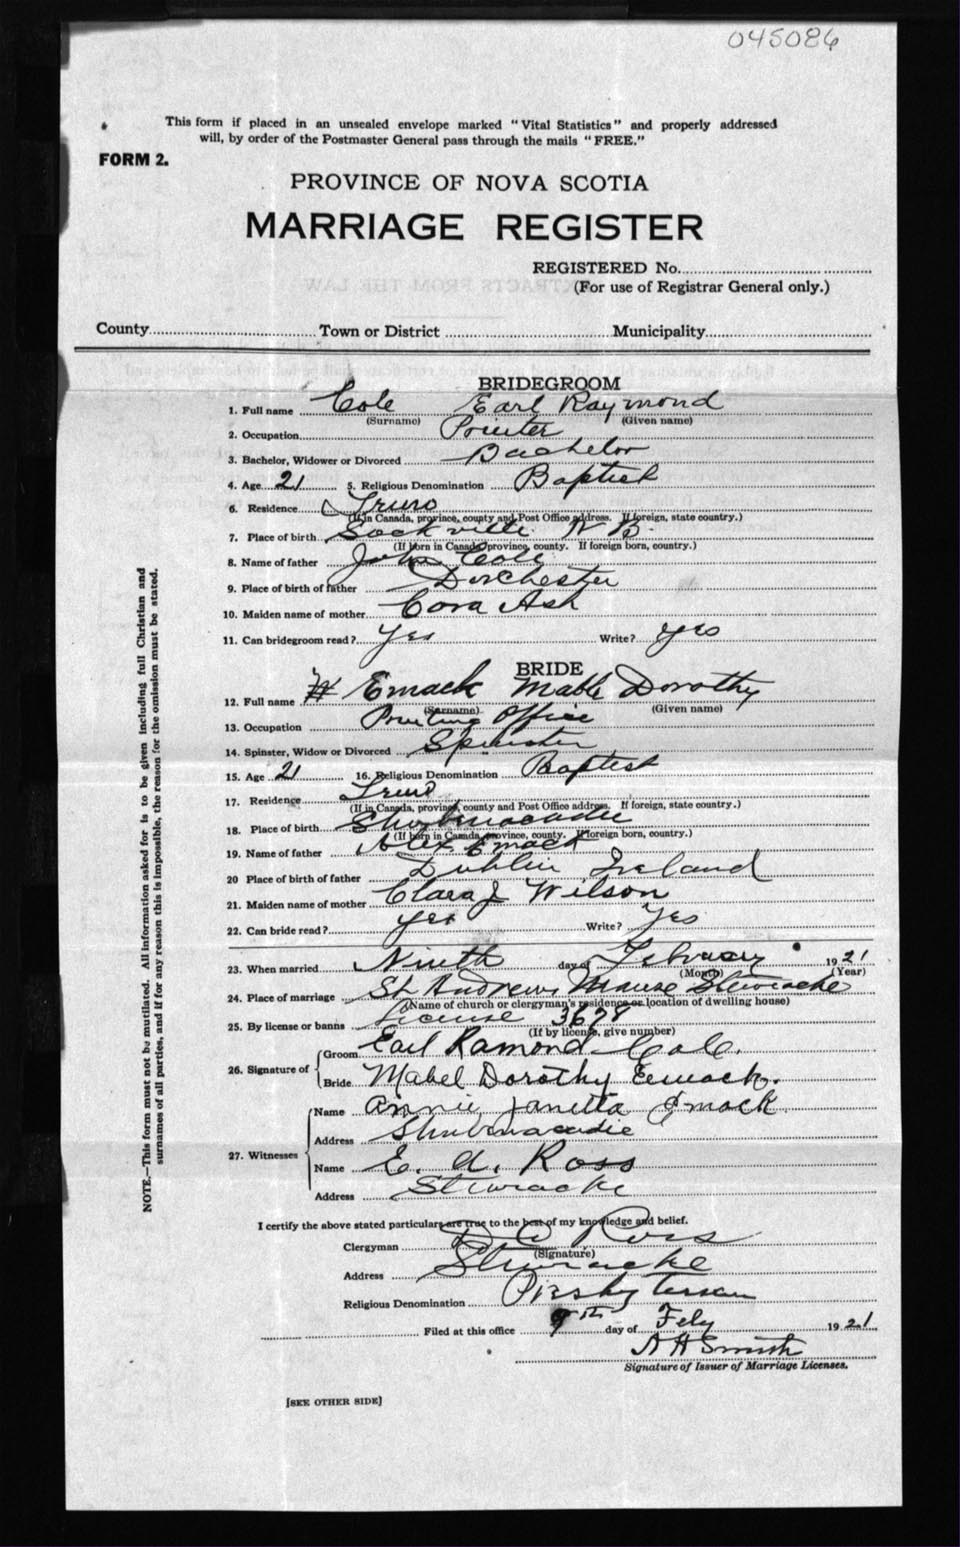 045086
This form if placed in an unsealed envelope marked "Vital Statistics" and properly addressed
will, by order of the Postmaster General pass through the mails "FREE."
FORM 2.
PROVINCE OF NOVA SCOTIA
MARRIAGE REGISTER
REGISTERED No.
(For use of Registrar General only.)
County Town or District Municipality
BRIDEGROOM
1. Full name Cole Earl Raymond
(Surname) (Given name)
2. Occupation Printer
3. Bachelor, Widower or Divorced Bachelor
4. Age 21 5. Religious Denomination Baptist
6. Residence Truro
(If in Canada, province, county and Post Office address. If foreign, state country.)
7. Place of birth Sackville N B.
(If born in Canada, province, county. If foreign born, country.)
8. Name of father John Cole
9. Place of birth of father Dorchester
10. Maiden name of mother Cora Ash
11. Can bridegroom read? Yes Write? Yes
BRIDE
12. Full name Emack Mable Dorothy
(Surname) (Given name)
13. Occupation Printing Office
14. Spinster, Widow or Divorced Spinster
15. Age 21 16. Religious Denomination Baptist
17. Residence Truro
(If in Canada, province, county and Post Office address. If foreign, state country.)
18. Place of birth Shubenacadie
(If born in Canada, province, county. If foreign born, country.)
19. Name of father Alex Emack
20 Place of birth of father Dublin Ireland
21. Maiden name of mother Clara J Wilson
22. Can bride read? Yes Write? Yes
23. When married Ninth day of February 1921
(Month) (Year)
24. Place of marriage St Andrews Manse Stewiacke
(Name of church or clergyman's residence or location of dwelling house)
25. By license or banns License 3678
(If by license, give number)
26. Signature of
Groom Earl Ramond Cole.
Bride Mabel Dorothy Emack.
27. Witnesses
Name Annie Janetta Emack
Address Shubenacadie
Name E. A. Ross
Address Stewiacke
I certify the above stated particulars are true to the best of my knowledge and belief.
Clergyman Ross
(Signature)
Address Stewiacke
Religious Denomination Presbyterian
Filed at this office 9th day of Feby 1921
A H Smith
Signature of Issuer of Marriage Licenses.
[SEE OTHER SIDE]
NOTE.—This form must not be mutilated. All information asked for is to be given including full Christian and
surnames of all parties, and if for any reason this is impossible, the reason for the omission must be stated.